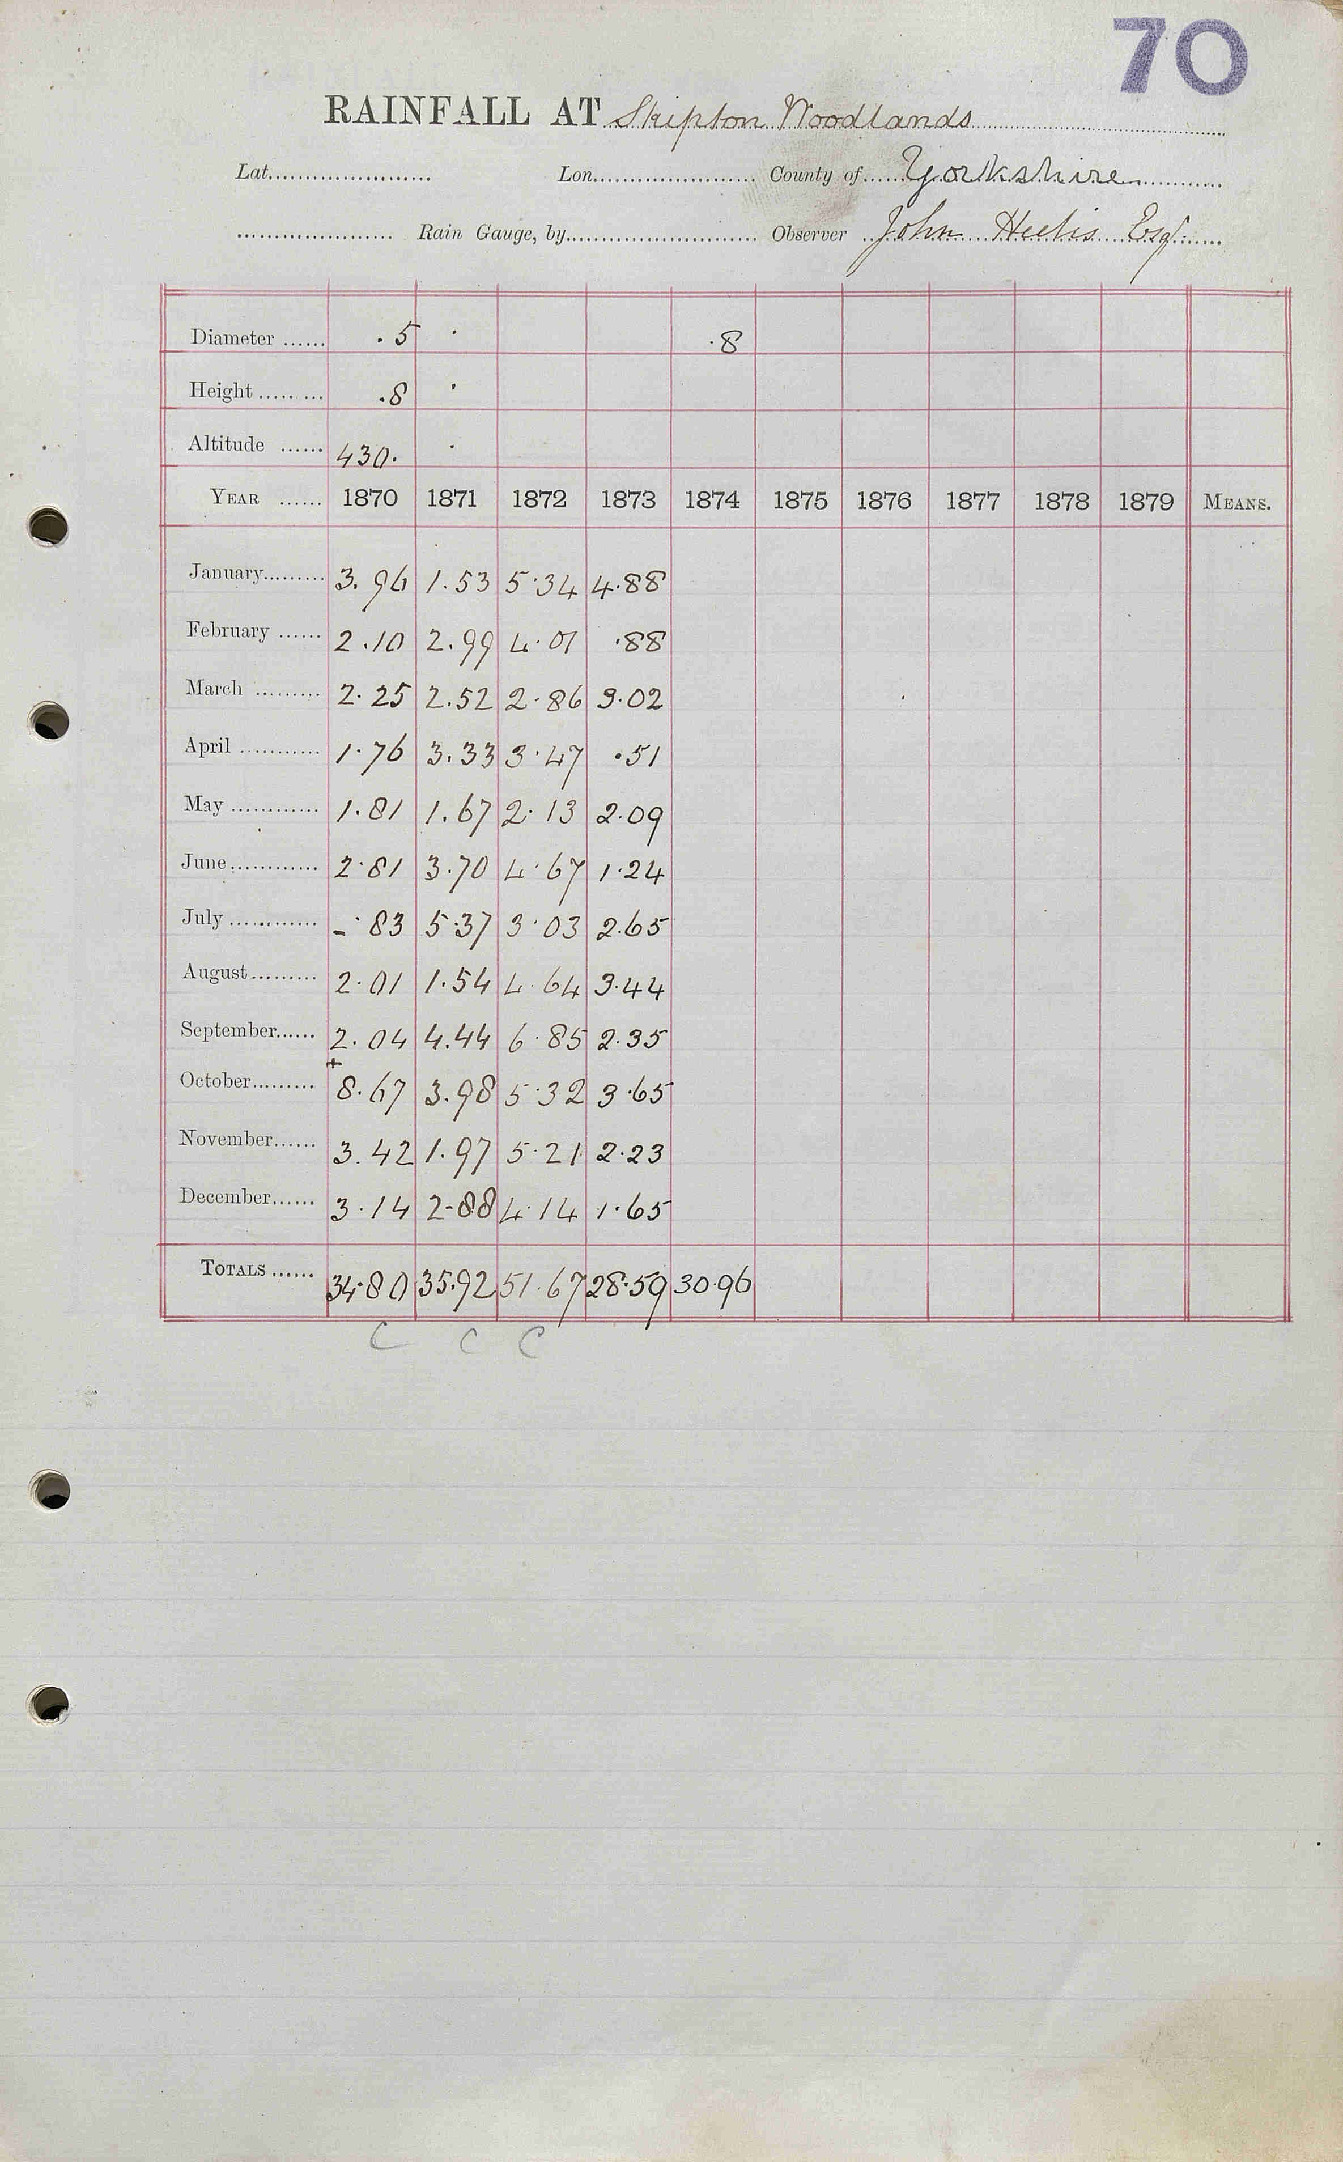 70
RAINFALL AT Skipton Woodlands
Lat. Lon. County of Yorkshire
Rain Gauge, by Observer John Heelis Esq.
Diameter ...... .5 . .8
Height ......... .8 .
Altitude ...... 430. .
YEAR ...... 1870 1871 1872 1873 1874 1875 1876 1877 1878 1879 MEANS.
January......... 3.96 1.53 5.34 4.88
February ...... 2.10 2.99 4.01 .88
March ......... 2.25 2.52 2.86 3.02
April ............ 1.76 3.33 3.47 .51
May ............ 1.81 1.67 2.13 2.09
June............ 2.81 3.70 4.67 1.24
July ............ -.83 5.37 3.03 2.65
August......... 2.01 1.54 4.64 3.44
September...... 2.04 4.44 6.85 2.35
+
October......... 8.67 3.98 5.32 3.65
November...... 3.42 1.97 5.21 2.23
December...... 3.14 2.88 4.14 1.65
TOTALS ...... 34.80 35.92 51.67 28.59 30.96
C C C